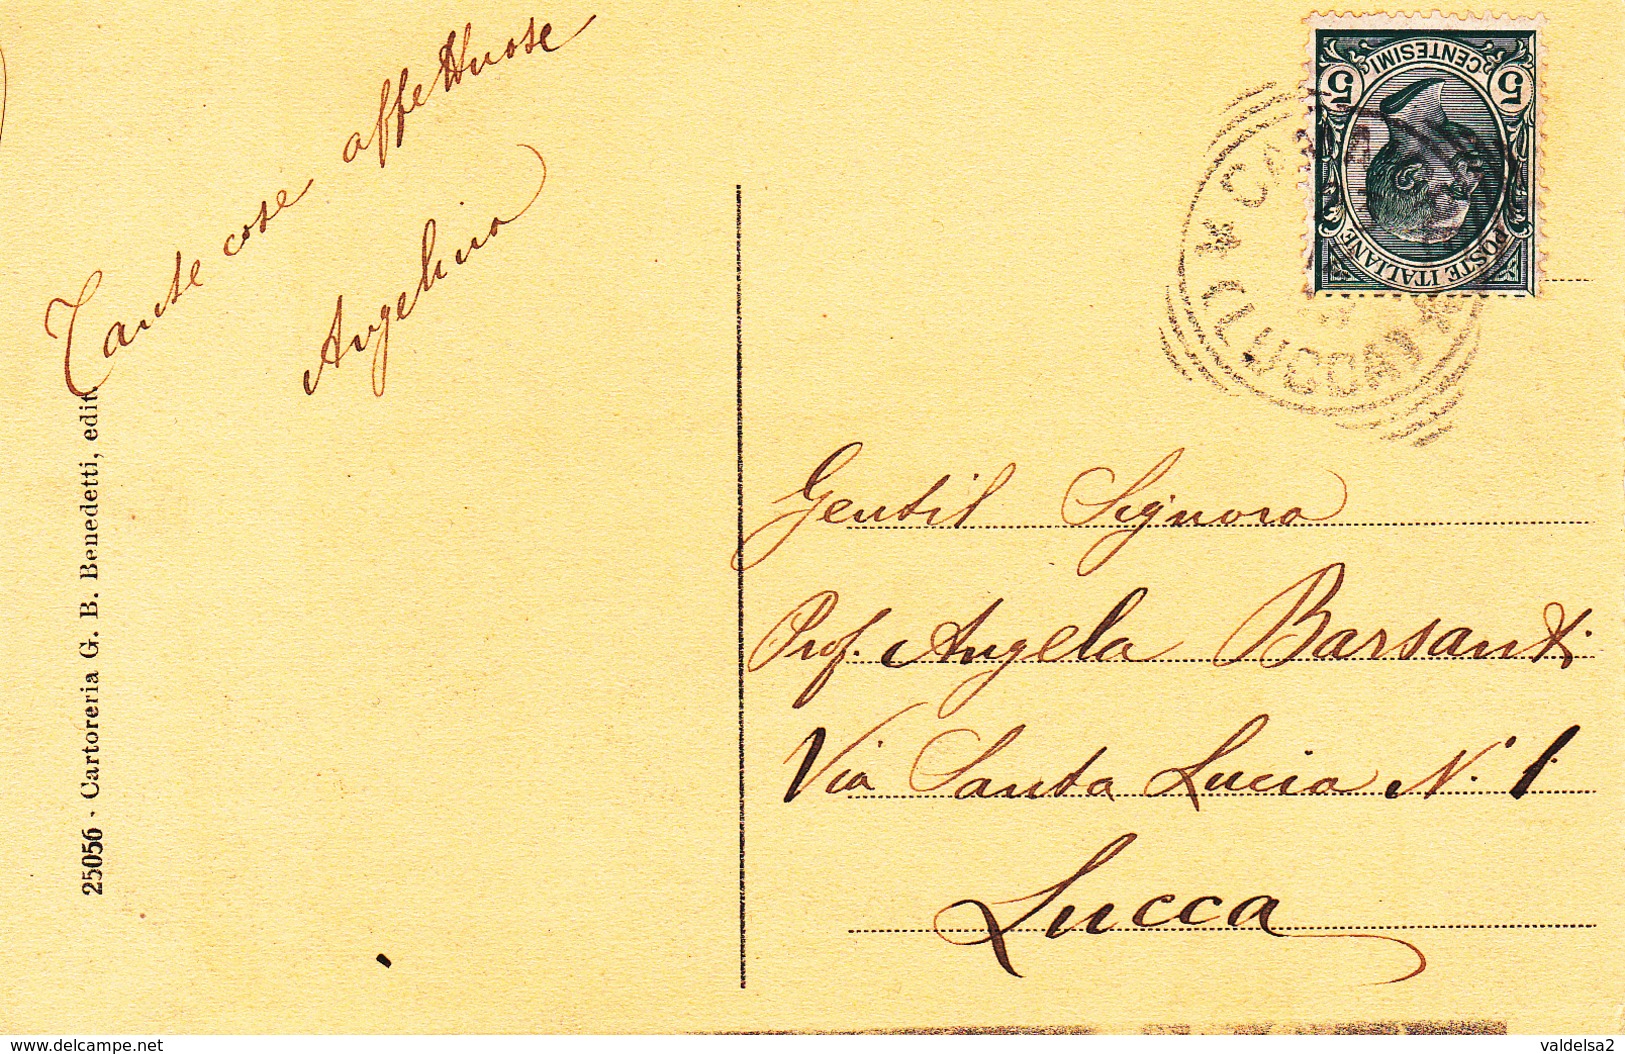 Tante cose affettuose
Angelina
25056 - Cartoreria G. B. Benedetti, edit.
5 CENTESIMI 5
POSTE ITALIANE
LUCCA
Gentil Signora
Prof. Angela Barsanti
Via Santa Lucia N.º 1.
Lucca
www.delcampe.net
valdelsa2